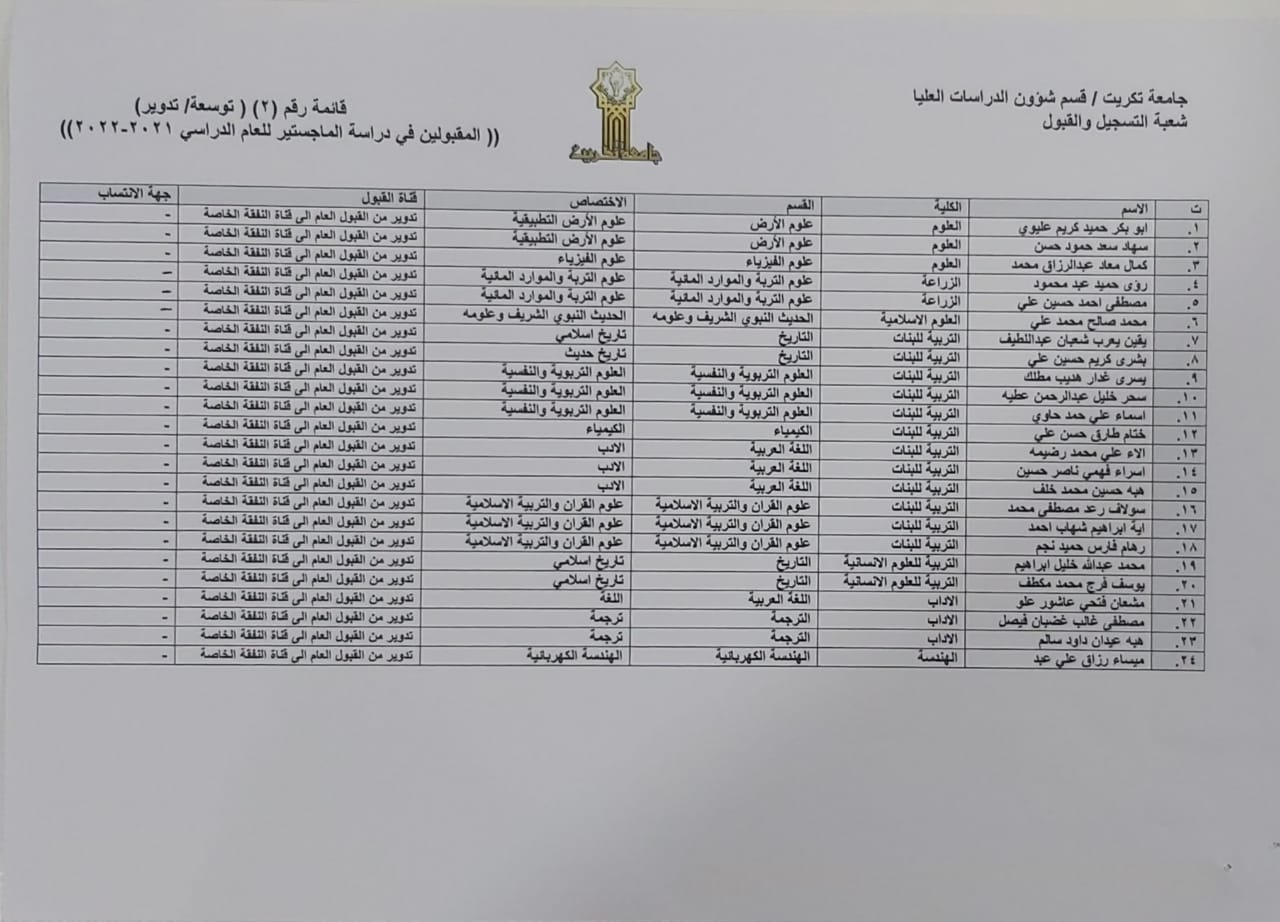 جامعة تكريت / قسم شؤون الدراسات العليا
شعبة التسجيل والقبول
جامعة تكريت
قائمة رقم (٢) ( توسعة/ تدوير)
(( المقبولين في دراسة الماجستير للعام الدراسي ٢٠٢١-٢٠٢٢))
ت الاسم الكلية القسم الاختصاص قناة القبول جهة الانتساب
١. ابو بكر حميد كريم عليوي العلوم علوم الأرض علوم الأرض التطبيقية تدوير من القبول العام الى قناة النفقة الخاصة -
٢. سهاد سعد حمود حسن العلوم علوم الأرض علوم الأرض التطبيقية تدوير من القبول العام الى قناة النفقة الخاصة -
٣. كمال معاد عبدالرزاق محمد العلوم علوم الفيزياء علوم الفيزياء تدوير من القبول العام الى قناة النفقة الخاصة -
٤. رؤى حميد عبد محمود الزراعة علوم التربة والموارد المائية علوم التربة والموارد المائية تدوير من القبول العام الى قناة النفقة الخاصة –
٥. مصطفى احمد حسين علي الزراعة علوم التربة والموارد المائية علوم التربة والموارد المائية تدوير من القبول العام الى قناة النفقة الخاصة –
٦. محمد صالح محمد علي العلوم الاسلامية الحديث النبوي الشريف وعلومه الحديث النبوي الشريف وعلومه تدوير من القبول العام الى قناة النفقة الخاصة –
٧. يقين يعرب شعبان عبداللطيف التربية للبنات التاريخ تاريخ اسلامي تدوير من القبول العام الى قناة النفقة الخاصة -
٨. بشرى كريم حسين علي التربية للبنات التاريخ تاريخ حديث تدوير من القبول العام الى قناة النفقة الخاصة -
٩. يسرى غدار هديب مطلك التربية للبنات العلوم التربوية والنفسية العلوم التربوية والنفسية تدوير من القبول العام الى قناة النفقة الخاصة -
١٠. سحر خليل عبدالرحمن عطيه التربية للبنات العلوم التربوية والنفسية العلوم التربوية والنفسية تدوير من القبول العام الى قناة النفقة الخاصة -
١١. اسماء علي حمد حاوي التربية للبنات العلوم التربوية والنفسية العلوم التربوية والنفسية تدوير من القبول العام الى قناة النفقة الخاصة -
١٢. ختام طارق حسن علي التربية للبنات الكيمياء الكيمياء تدوير من القبول العام الى قناة النفقة الخاصة -
١٣. الاء علي محمد رضيمه التربية للبنات اللغة العربية الادب تدوير من القبول العام الى قناة النفقة الخاصة -
١٤. اسراء فهمي ناصر حسين التربية للبنات اللغة العربية الادب تدوير من القبول العام الى قناة النفقة الخاصة -
١٥. هبه حسين محمد خلف التربية للبنات اللغة العربية الادب تدوير من القبول العام الى قناة النفقة الخاصة -
١٦. سولاف رعد مصطفى محمد التربية للبنات علوم القران والتربية الاسلامية علوم القران والتربية الاسلامية تدوير من القبول العام الى قناة النفقة الخاصة -
١٧. اية ابراهيم شهاب احمد التربية للبنات علوم القران والتربية الاسلامية علوم القران والتربية الاسلامية تدوير من القبول العام الى قناة النفقة الخاصة -
١٨. رهام فارس حميد نجم التربية للبنات علوم القران والتربية الاسلامية علوم القران والتربية الاسلامية تدوير من القبول العام الى قناة النفقة الخاصة -
١٩. محمد عبدالله خليل ابراهيم التربية للعلوم الانسانية التاريخ تاريخ اسلامي تدوير من القبول العام الى قناة النفقة الخاصة -
٢٠. يوسف فرج محمد مكطف التربية للعلوم الانسانية التاريخ تاريخ اسلامي تدوير من القبول العام الى قناة النفقة الخاصة -
٢١. مشعان فتحي عاشور علو الاداب اللغة العربية اللغة تدوير من القبول العام الى قناة النفقة الخاصة -
٢٢. مصطفى غالب غضبان فيصل الاداب الترجمة ترجمة تدوير من القبول العام الى قناة النفقة الخاصة -
٢٣. هبه عيدان داود سالم الاداب الترجمة ترجمة تدوير من القبول العام الى قناة النفقة الخاصة -
٢٤. ميساء رزاق علي عبد الهندسة الهندسة الكهربائية الهندسة الكهربائية تدوير من القبول العام الى قناة النفقة الخاصة -